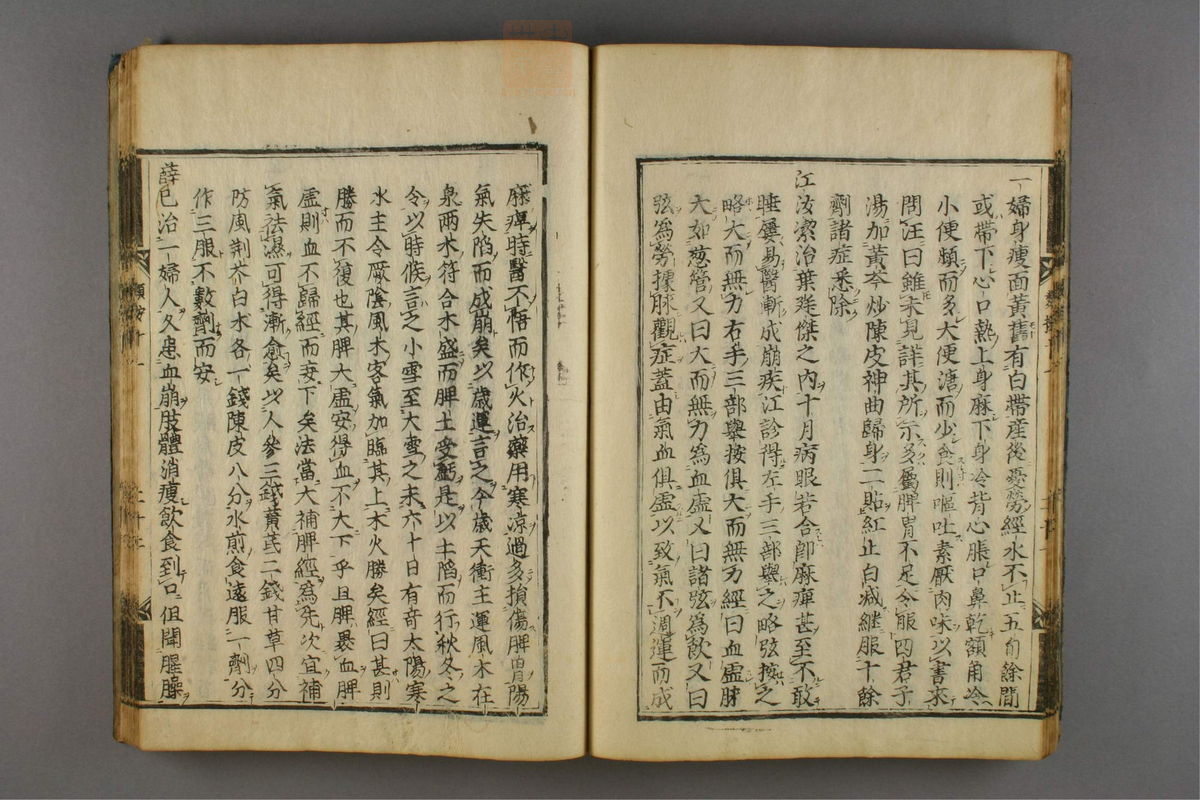 一婦身瘦面黃舊有白帶產後憂勞經水不止五旬餘間
或帶下心口熱上身麻下身冷背心脹口鼻乾額角冷
小便頻而多大便溏而少食則嘔吐素厭肉味以書來
問汪曰雖未見詳其所示多屬脾胃不足令服四君子
湯加黃芩炒陳皮神曲歸身二貼紅止白減繼服十餘
劑諸症悉除
江汝潔治葉廷傑之內十月病眼若合即麻痺甚至不敢
睡屢易醫漸成崩疾江診得左手三部舉之略弦按之
略大而無力右手三部舉按俱大而無力經曰血虛脉
大如葱管又曰大而無力為血虛又曰諸弦為飲又曰
弦為勞據脉觀症蓋由氣血俱虛以致氣不週運而成
麻痺時醫不悟而作火治藥用寒凉過多損傷脾胃陽
氣失陷而成崩矣以歲運言之今歲天衝主運風木在
泉兩木符合木盛而脾土受虧是以土陷而行秋冬之
令以時候言之小雪至大雪之末六十日有奇太陽寒
水主令厥陰風木客氣加臨其上木火勝矣經曰甚則
勝而不復也其脾大虛安得血不大下乎且脾褁血脾
虛則血不歸經而妄下矣法當大補脾經為先次宜補
氣祛濕可得漸愈矣以人參三錢黃芪二錢甘草四分
防風荊芥白朮各一錢陳皮八分水煎食遠服一劑分
作三服不數劑而安
薛巳治一婦人久患血崩肢體消瘦飲食到口但聞腥臊